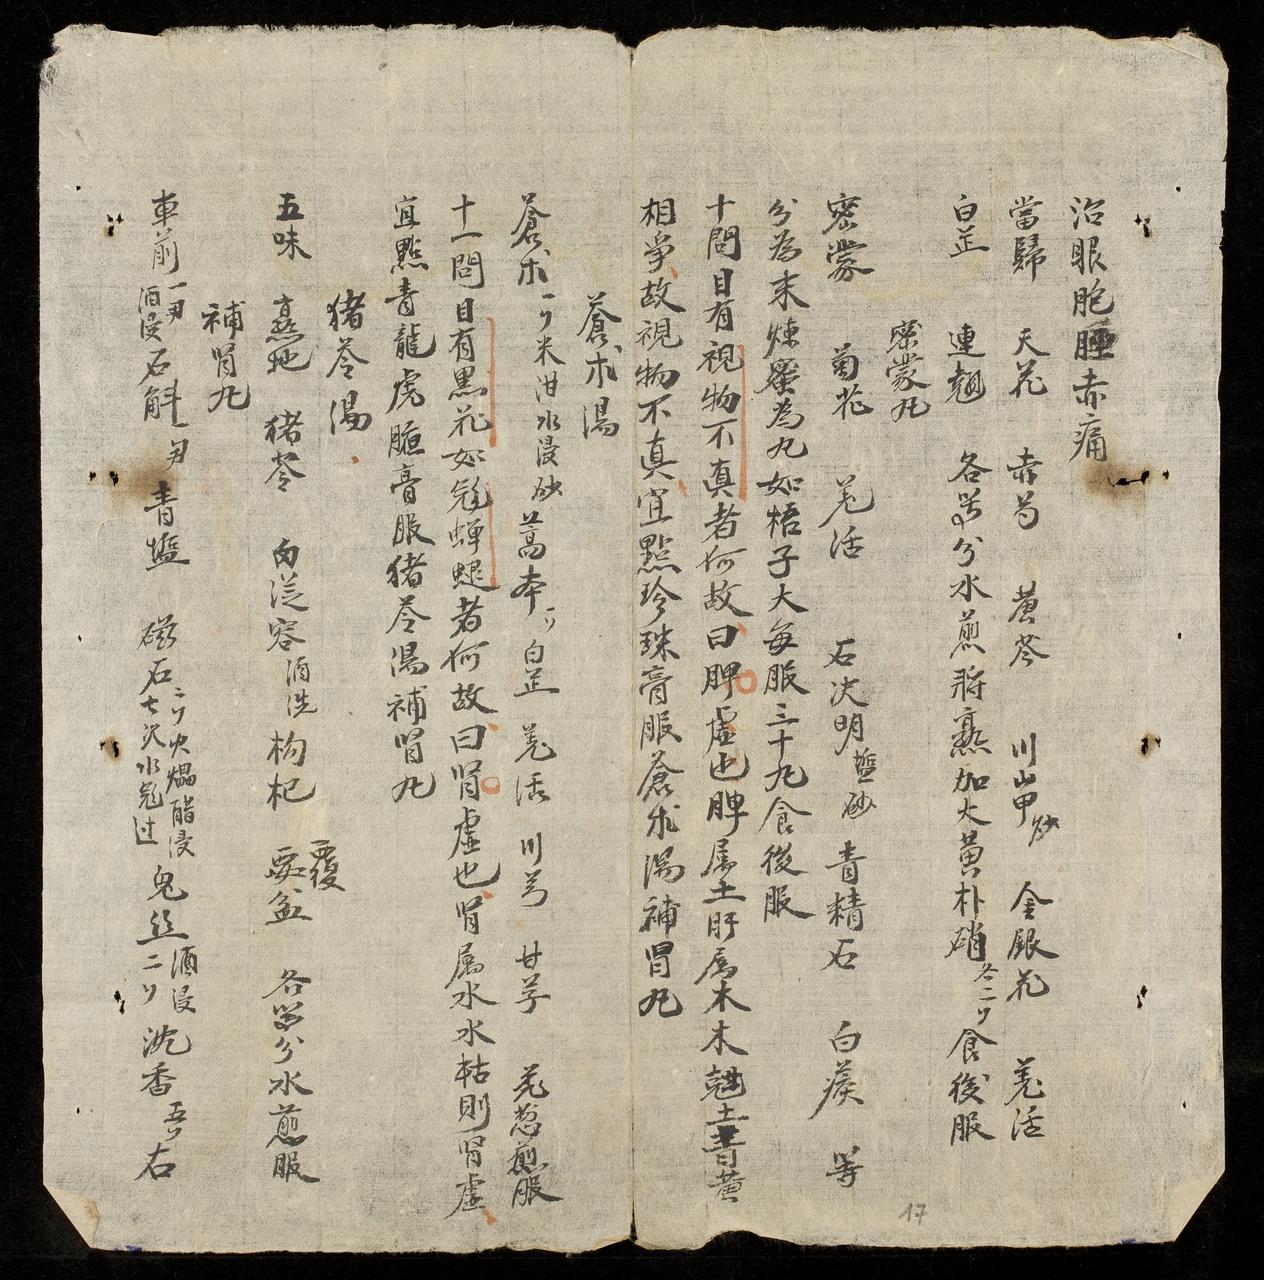 治眼胞腫赤痛
當歸 天花 赤芍 黃芩 川山甲炒 金銀花 羌活
白芷 連翹 各等分水煎將熟加大黃朴硝各二ﾘ食後服
密蒙丸
密蒙 菊花 羌活 石決明塩砂 青精石 白蒺 等
分為末煉蜜為丸如梧子大每服三十九食後服
十問目有視物不真者何故曰脾虛也脾属土肝属木木尅土青黃
相爭故視物不真宜點珍珠膏服蒼朮湯補胃丸
蒼朮湯
蒼朮一ﾘ米泔水浸砂 藁本ﾘ 白芷 羌活 川芎 甘草 葱煎服
十一問目有黑花如飛蟬 者何故曰肾虛也肾属水水枯則肾虛
宜點青龍虎膽膏服猪苓湯補肾丸
猪苓湯
五味 熟地 猪苓 肉從容酒洗 枸杞 覆盆 各等分水煎服
覆
補肾丸
車前一两酒浸 石斛一两 青塩 磁石二ﾘ火煅醋浸七次水飛过 兔丝二ﾘ酒浸 沈香五ﾘ右
17